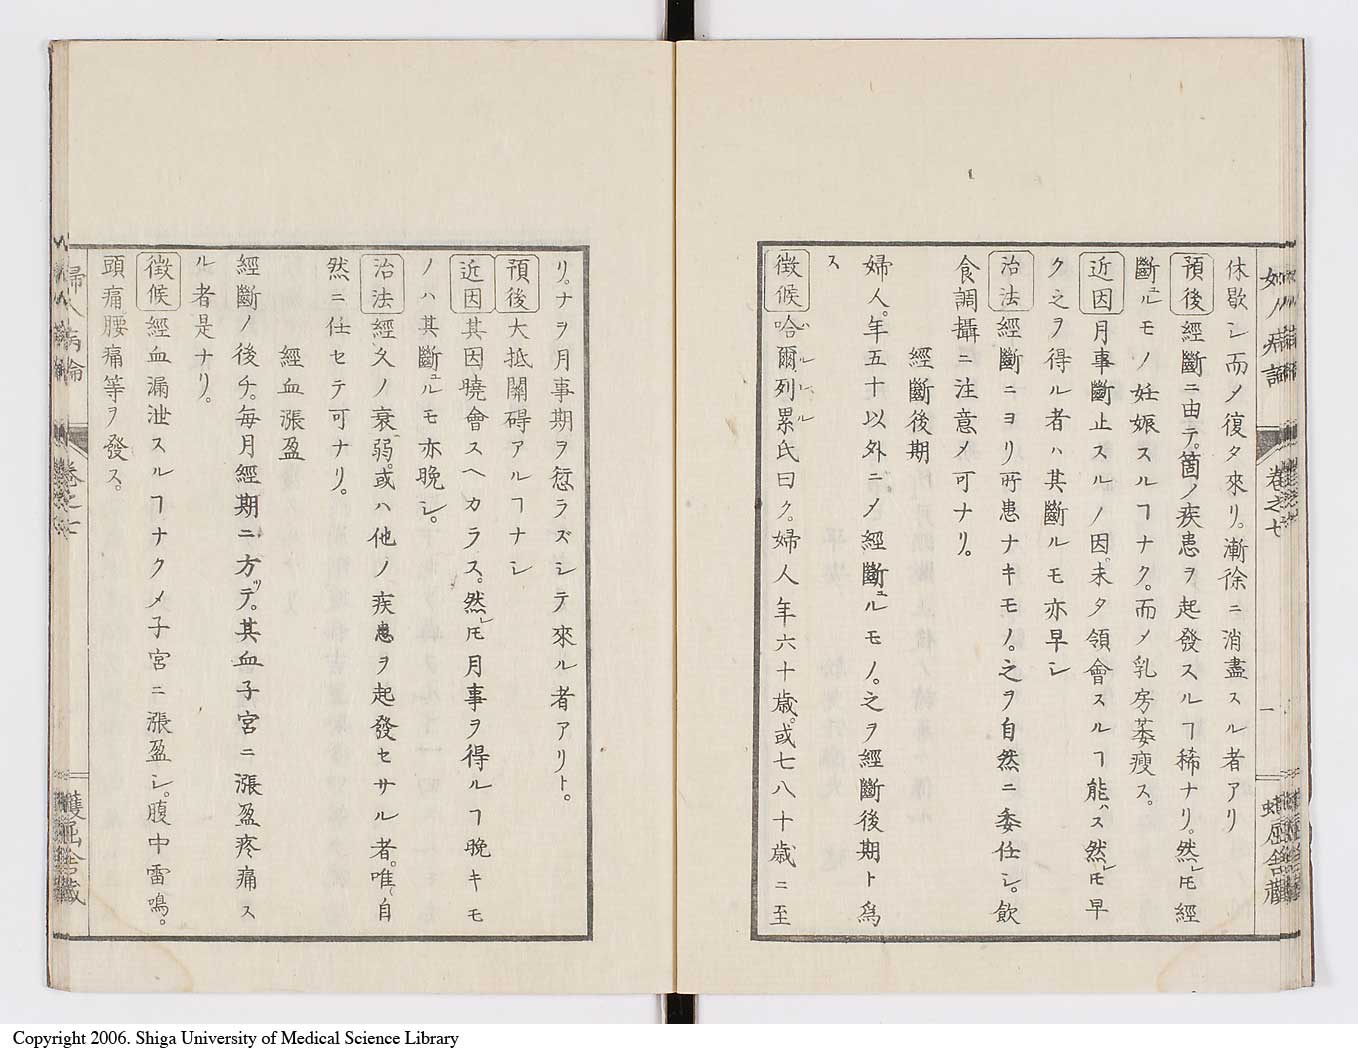 休歇シ而〆復タ來リ。漸徐ニ消盡スル者アリ
預後 經斷ニ由テ。箇ノ疾患ヲ起發スルヿ稀ナリ。然レ𪜈經
斷ユルモノ妊娠スルヿナク。而〆乳房萎瘦ス。
近因 月事斷止スルノ因。未タ領會スルヿ能ハス然レ𪜈早
ク之ヲ得ル者ハ其斷ルモ亦早シ
治法 經斷ニヨリ所患ナキモノ。之ヲ自然ニ委任シ。飲
食調攝ニ注意〆可ナリ。
經斷後期
婦人。年五十以外ニ〆經斷ユルモノ。之ヲ經斷後期ト爲
ス
徴候 哈爾列累氏曰ク。婦人年六十歳。或七八十歳ニ至
ハルレル
リ。ナヲ月事期ヲ愆ラズシテ來ル者アリト。
預後 大抵關碍アルヿナシ
近因 其因曉會スヘカラス。然レ𪜈月事ヲ得ルヿ晩キモ
ノハ其斷ユルモ亦晩シ。
治法 經久ノ衰弱。或ハ他ノ疾患ヲ起發セサル者。唯自
然ニ任セテ可ナリ。
經血漲盈
經斷ノ後チ。毎月經期ニ方ツテ。其血子宮ニ漲盈疼痛ス
ル者是ナリ。
徴候 經血漏泄スルヿナク〆子宮ニ漲盈シ。腹中雷鳴。
頭痛腰痛等ヲ發ス。
婦人病論
卷之七
蠖屈舍藏
Copyright 2006. Shiga University of Medical Science Library